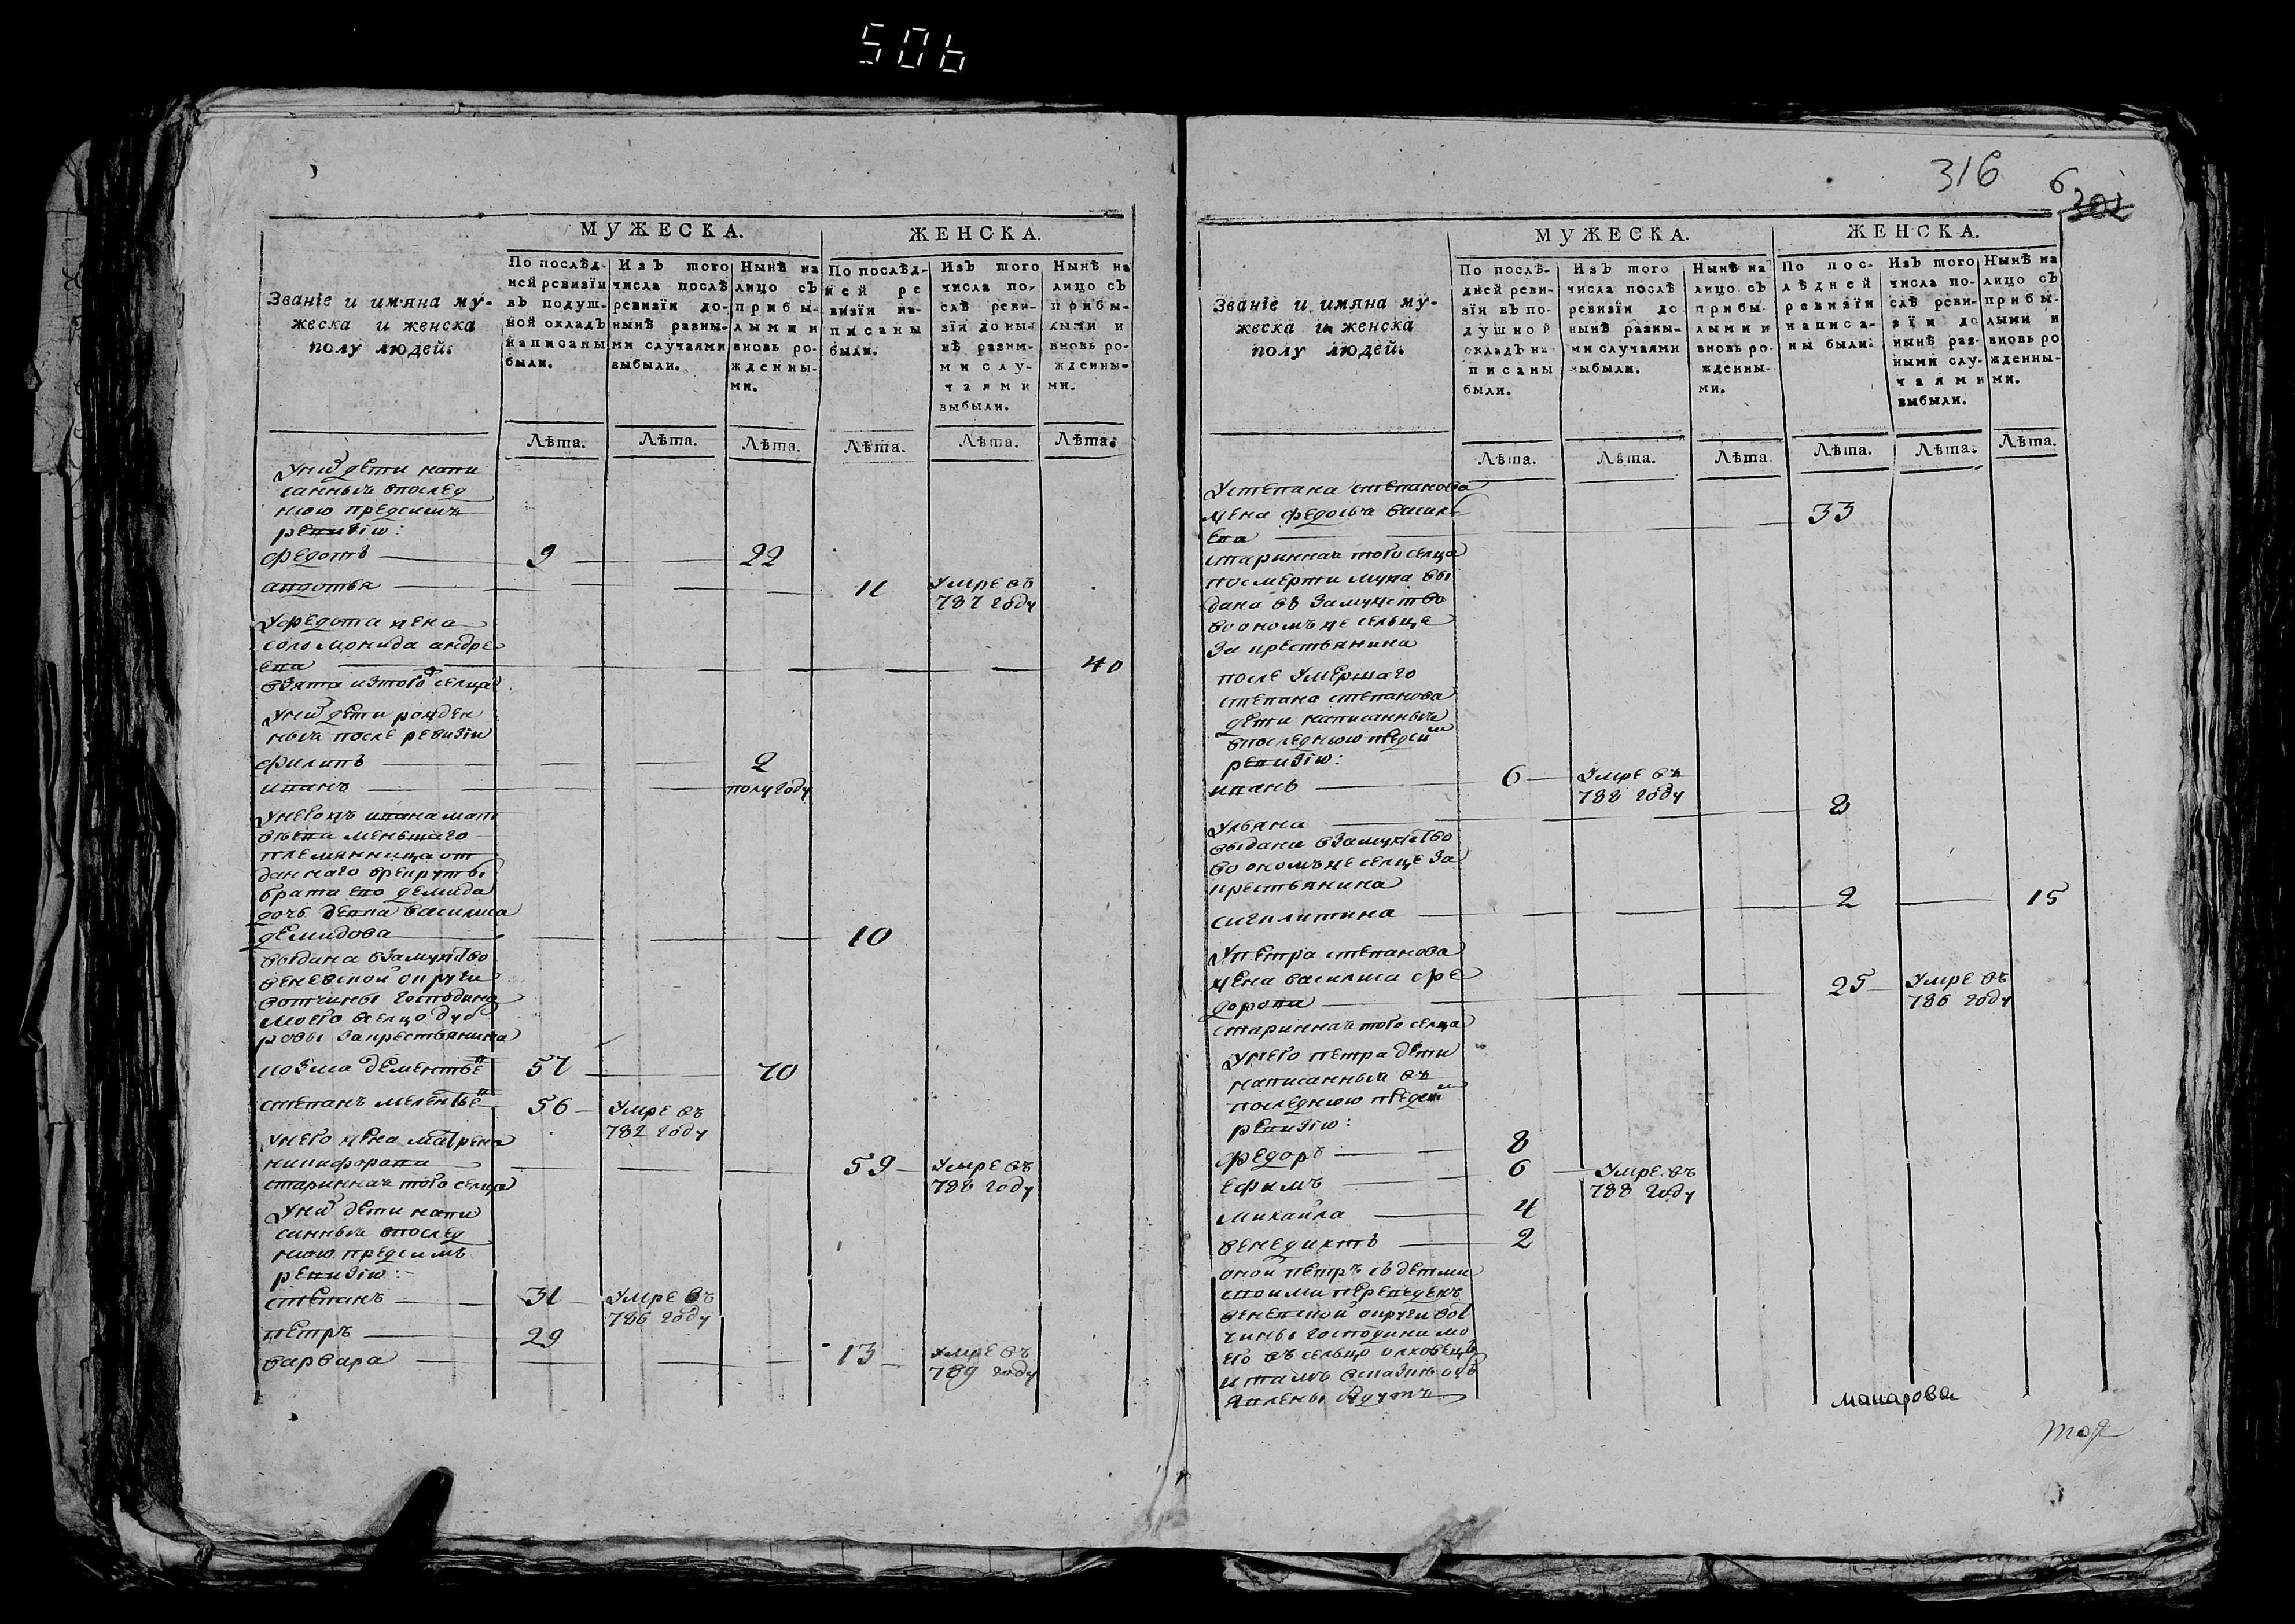 506
МУЖЕСКА.
ЖЕНСКА.
Званіе и имяна му-
жеска и женска
полу людей.
По послѣд-
ней ревизіи
въ подуш-
ной окладъ
написаны
были.
Изъ того
числа послѣ
ревизіи до-
нынѣ разны-
ми случаями
выбыли.
Нынѣ на
лицо съ
прибы-
лыми и
вновь ро-
жденны-
ми.
По послѣд-
ней ре
визіи на-
писаны
были.
Изъ того
числа по-
слѣ реви-
зіи до ны-
нѣ разны-
ми слу-
чаями
выбыли.
Нынѣ на
лицо съ
прибы-
лыми и
вновь ро-
жденны-
ми.
Лѣта. Лѣта. Лѣта. Лѣта. Лѣта. Лѣта.
Уний дети напи
санныя впослед
нюю предсимъ
ревизiю:
федотъ 9 22
авдотья 11 Умре въ
787 году
Уфедота жена
соломонида андре
ева 40
взята изтого селца
Уний дети рожден
ныя после ревизiи
филипъ 2
иванъ полугоду
Унегожъ ивана мат
вѣева меньшаго
племянница от
даннаго врекруты
брата ево демида
дочь девка василиса
демидова 10
выдана взамужство
веневской округи
вотчины господина
моего вселцо дуб
ровы закрестьянина
козма дементьев 57 70
степанъ мелентьев 56 Умре въ
782 году
унего жена матрена
никифорова 59 Умре въ
788 году
стариннаѧ того селца
Уний дети напи
санныя впослед
нюю предсимъ
ревизiю:
степанъ 31 Умре въ
786 году
петръ 29
варвара 13 умре въ
789 году
316
6
302
МУЖЕСКА.
ЖЕНСКА.
Званіе и имяна му-
жеска и женска
полу людей.
По послѣ-
дней реви-
зіи въ по-
душной
окладъ на-
писаны
были.
Изъ того
числа послѣ
ревизіи до
нынѣ разны-
ми случаями
выбыли.
Нынѣ на
лицо съ
прибы-
лыми и
вновь ро-
жденны-
ми.
По пос-
лѣдней
ревизіи
написа-
ны были.
Изъ того
числа по-
слѣ реви-
зіи до
нынѣ раз-
ными слу-
чаями
выбыли.
Нынѣ на
лицо съ
прибы-
лыми и
вновь ро
жденны-
ми.
Лѣта. Лѣта. Лѣта. Лѣта. Лѣта. Лѣта.
Устепана степанова
жена федосья васил
ева 33
стариннаѧ того селца
посмерти мужа вы
дана въ замужство
во ономъже сельце
за крестьянина
после умершаго
степана степанова
дети написанныя
впоследнюю предсим
ревизiю:
иванъ 6 Умре въ
788 году
Ульяна 8
выдана взамужство
во ономъже селце за
крестьянина
сигклитина 2 15
Упетра степанова
жена василиса фе
дорова 25 Умре въ
786 году
стариннаѧ того селца
Унего петра дети
написанныя въ
последнюю предсим
ревизiю:
федоръ 8
ефимъ 6 Умре въ
788 году
михайла 4
венедиктъ 2
оной петръ съ детми
своими переведенъ
веневской округи вот
чины господина мо
его въ сельцо олховецъ
и тамъ всказке объ
явлены будутъ
макарова